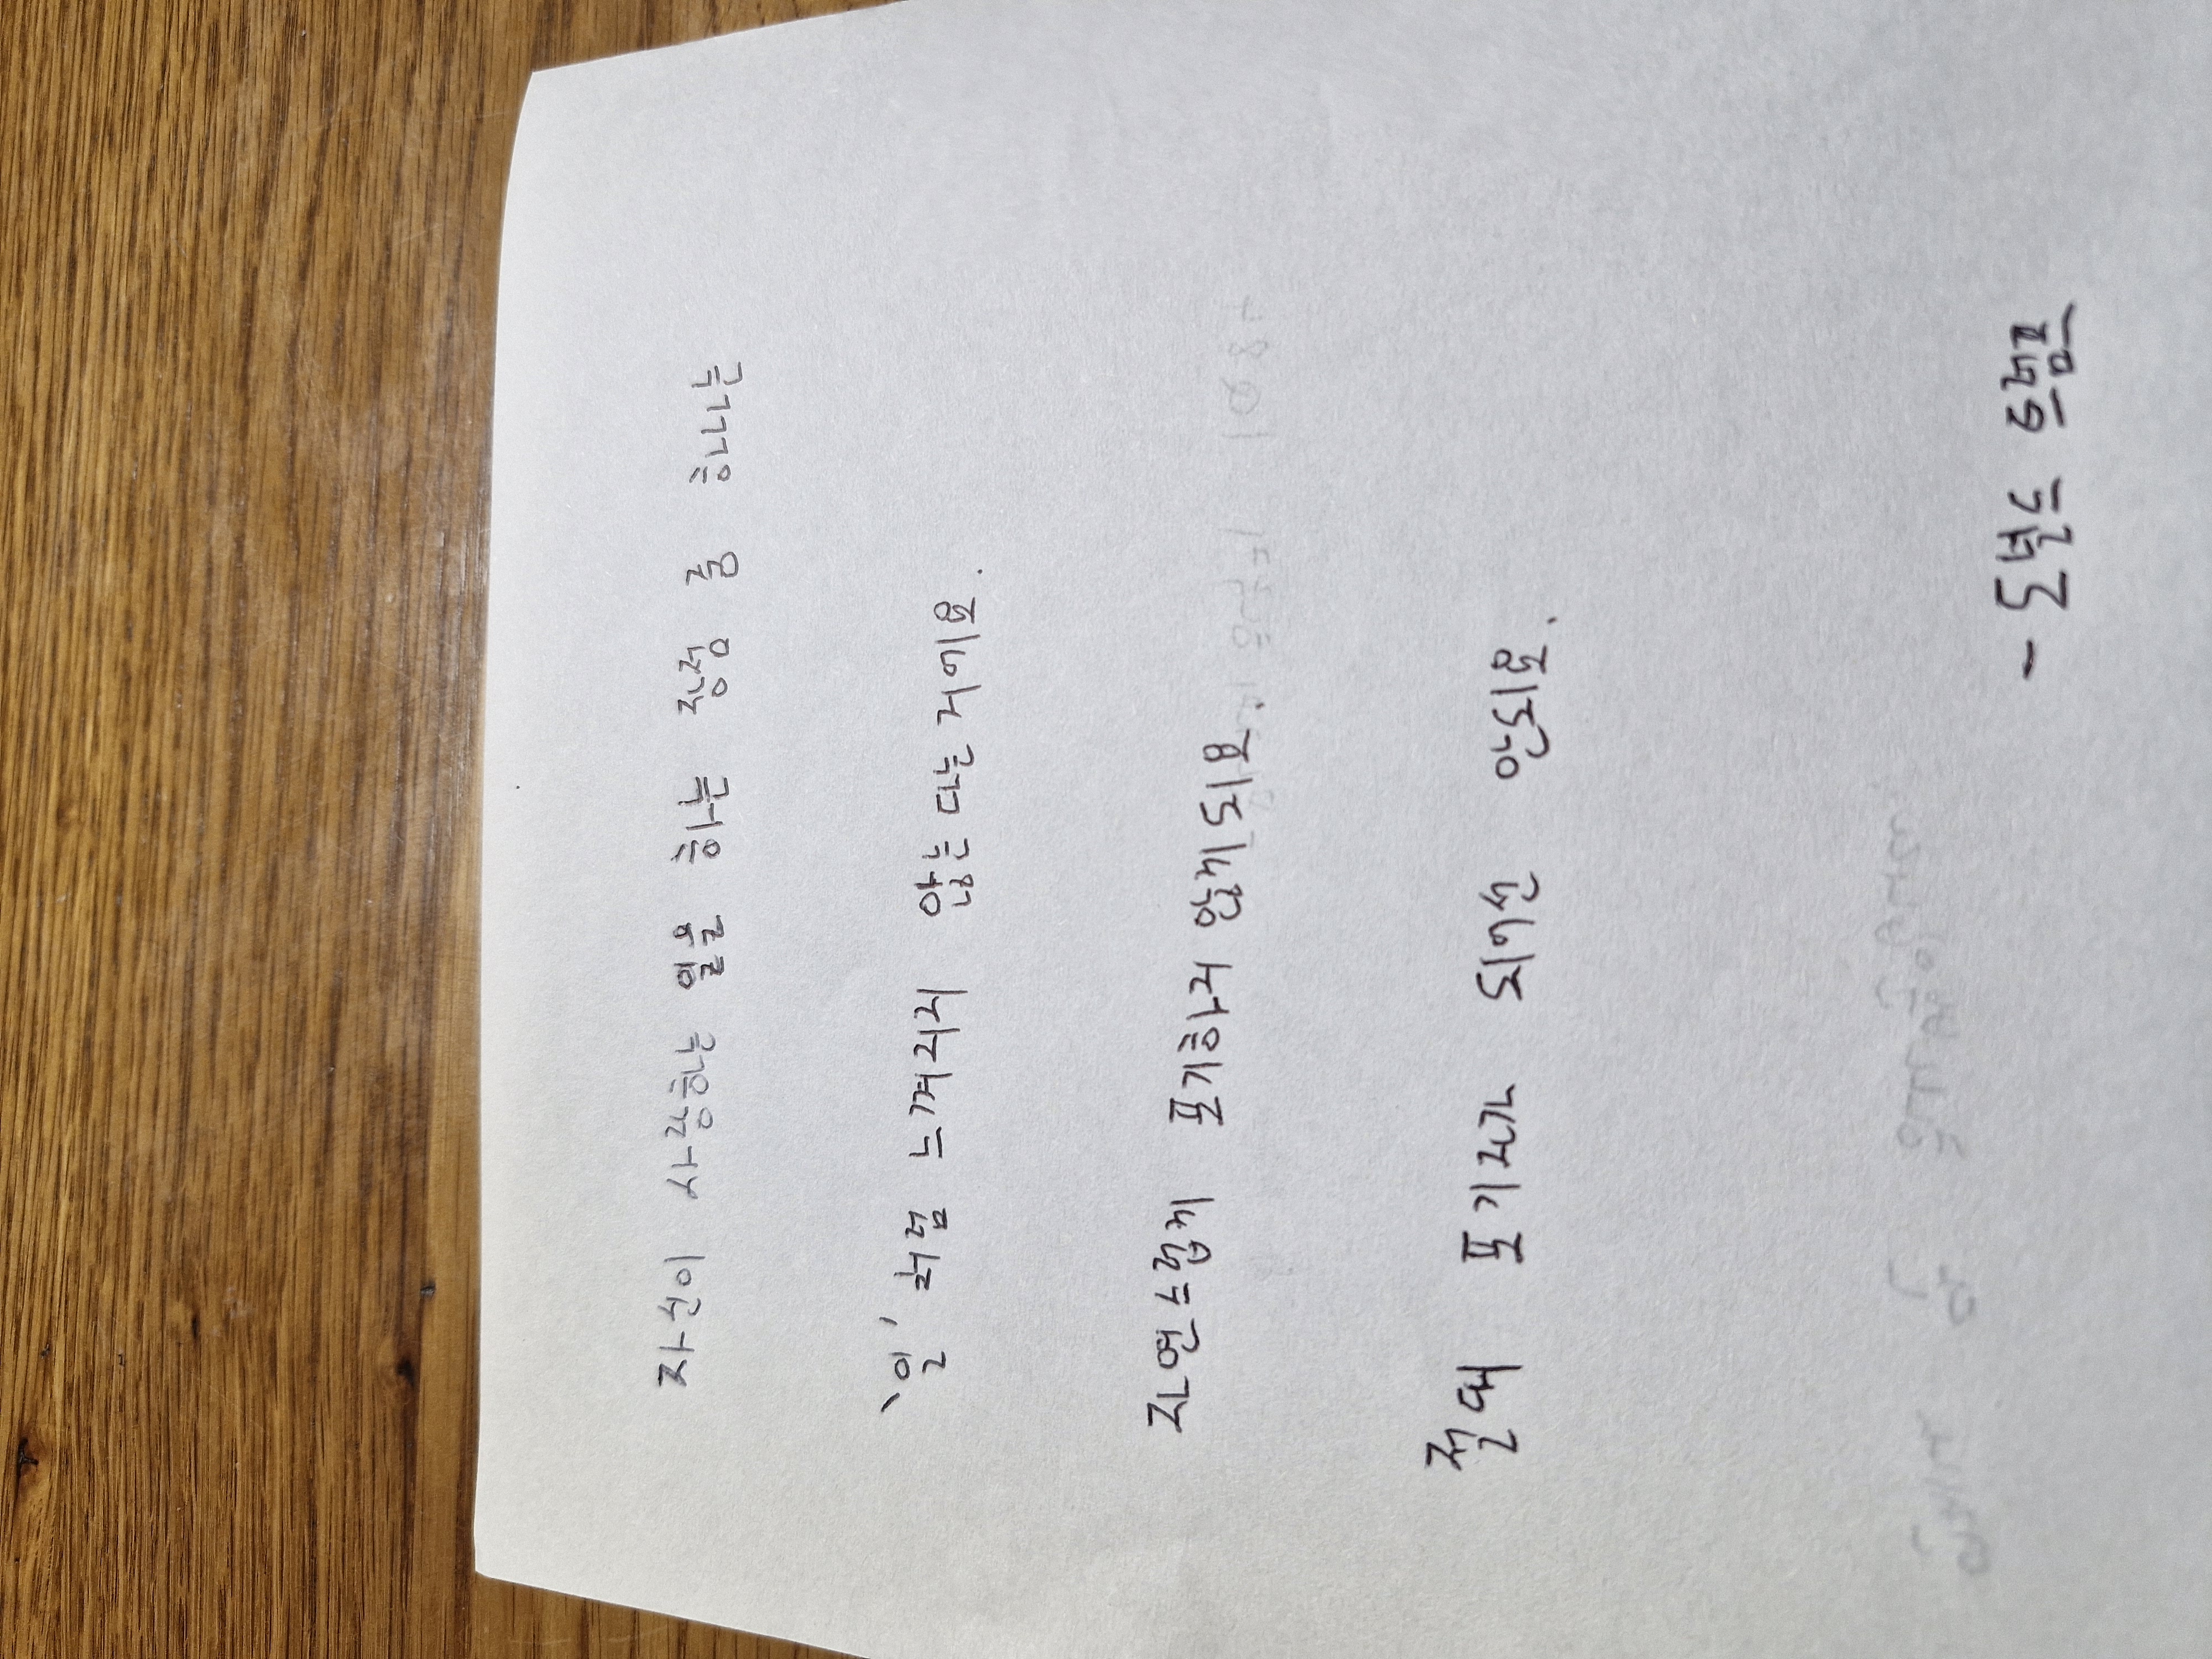 자신이 사랑하는 일을 하는 장점 중 하나는
'일'처럼 느껴지지 않는 다는 거에요.
자연스럽게 포기하지 않게 되요.
절대 포기자가 되어선 안되요.
- 도널드 트럼프